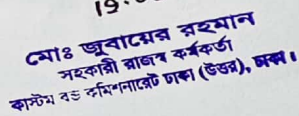 19.
মোঃ জুবায়ের রহমান
সহকারী রাজস্ব কর্মকর্তা
কাস্টমস বন্ড কমিশনারেট ঢাকা (উত্তর), ঢাকা।